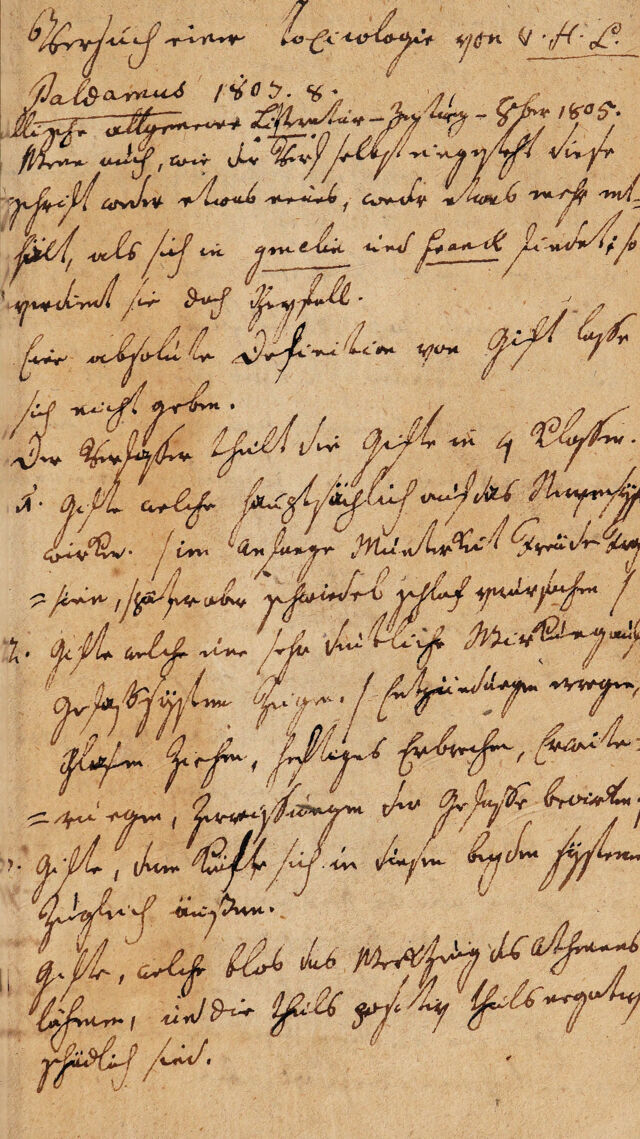 Versuch einer Toxicologie von V. H. L.
Paldamus 1803. 8.
allgemeine Litteratur-Zeitung - 8ber 1805.
Wenn auch, wie der Verf selbst eingesteht diese
Schrift weder etwas neues, weder etwas mehr ent-
hält, als sich in Gmelin und Franck findet; so
verdient sie doch Beyfall.
Eine absolute Definition von Gift lasse
sich nicht geben.
Der Verfasser theilt die Gifte in 4 Klassen.
1. Gifte welche hauptsächlich auf das Nervensys
wirken. / im Anfange Munterkeit Freude
=sinn, später aber Schwindel Schlaf verursachen /
2. Gifte welche eine sehr deutliche Wirkung aufs
Gefässsystem zeigen. / Entzündungen erregen,
Blasen ziehen, heftiges Erbrechen, Erweite=
=rungen, Zerreissungen der Gefässe bewirken,
Gifte, deren Kräfte sich in diesen beyden Systemen
zugleich äussern.
Gifte, welche blos das Werkzeug des Athmens
lähmen, und die theils positiv theils negativ
schädlich sind.